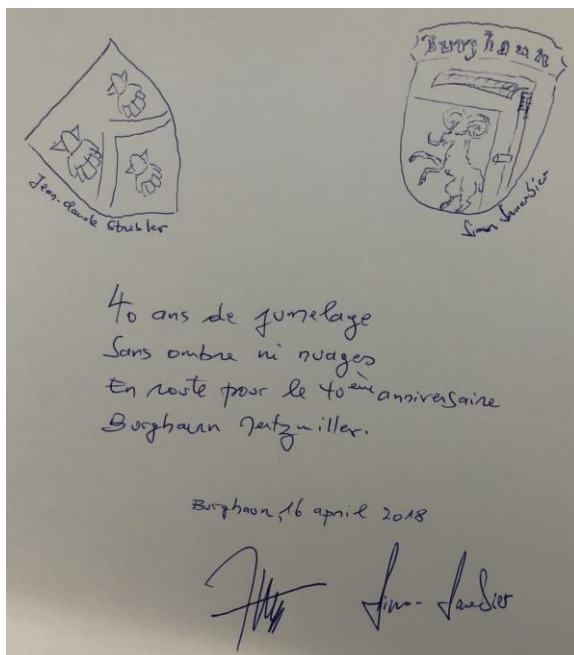 Burghaun
Jean-Claude Strebler
Simon Sauerbier
40 ans de jumelage
Sans ombre ni nuages
En route pour le 40ème anniversaire
Burghaun Mertzwiller.
Burghaun, 16 april 2018
Simon Sauerbier